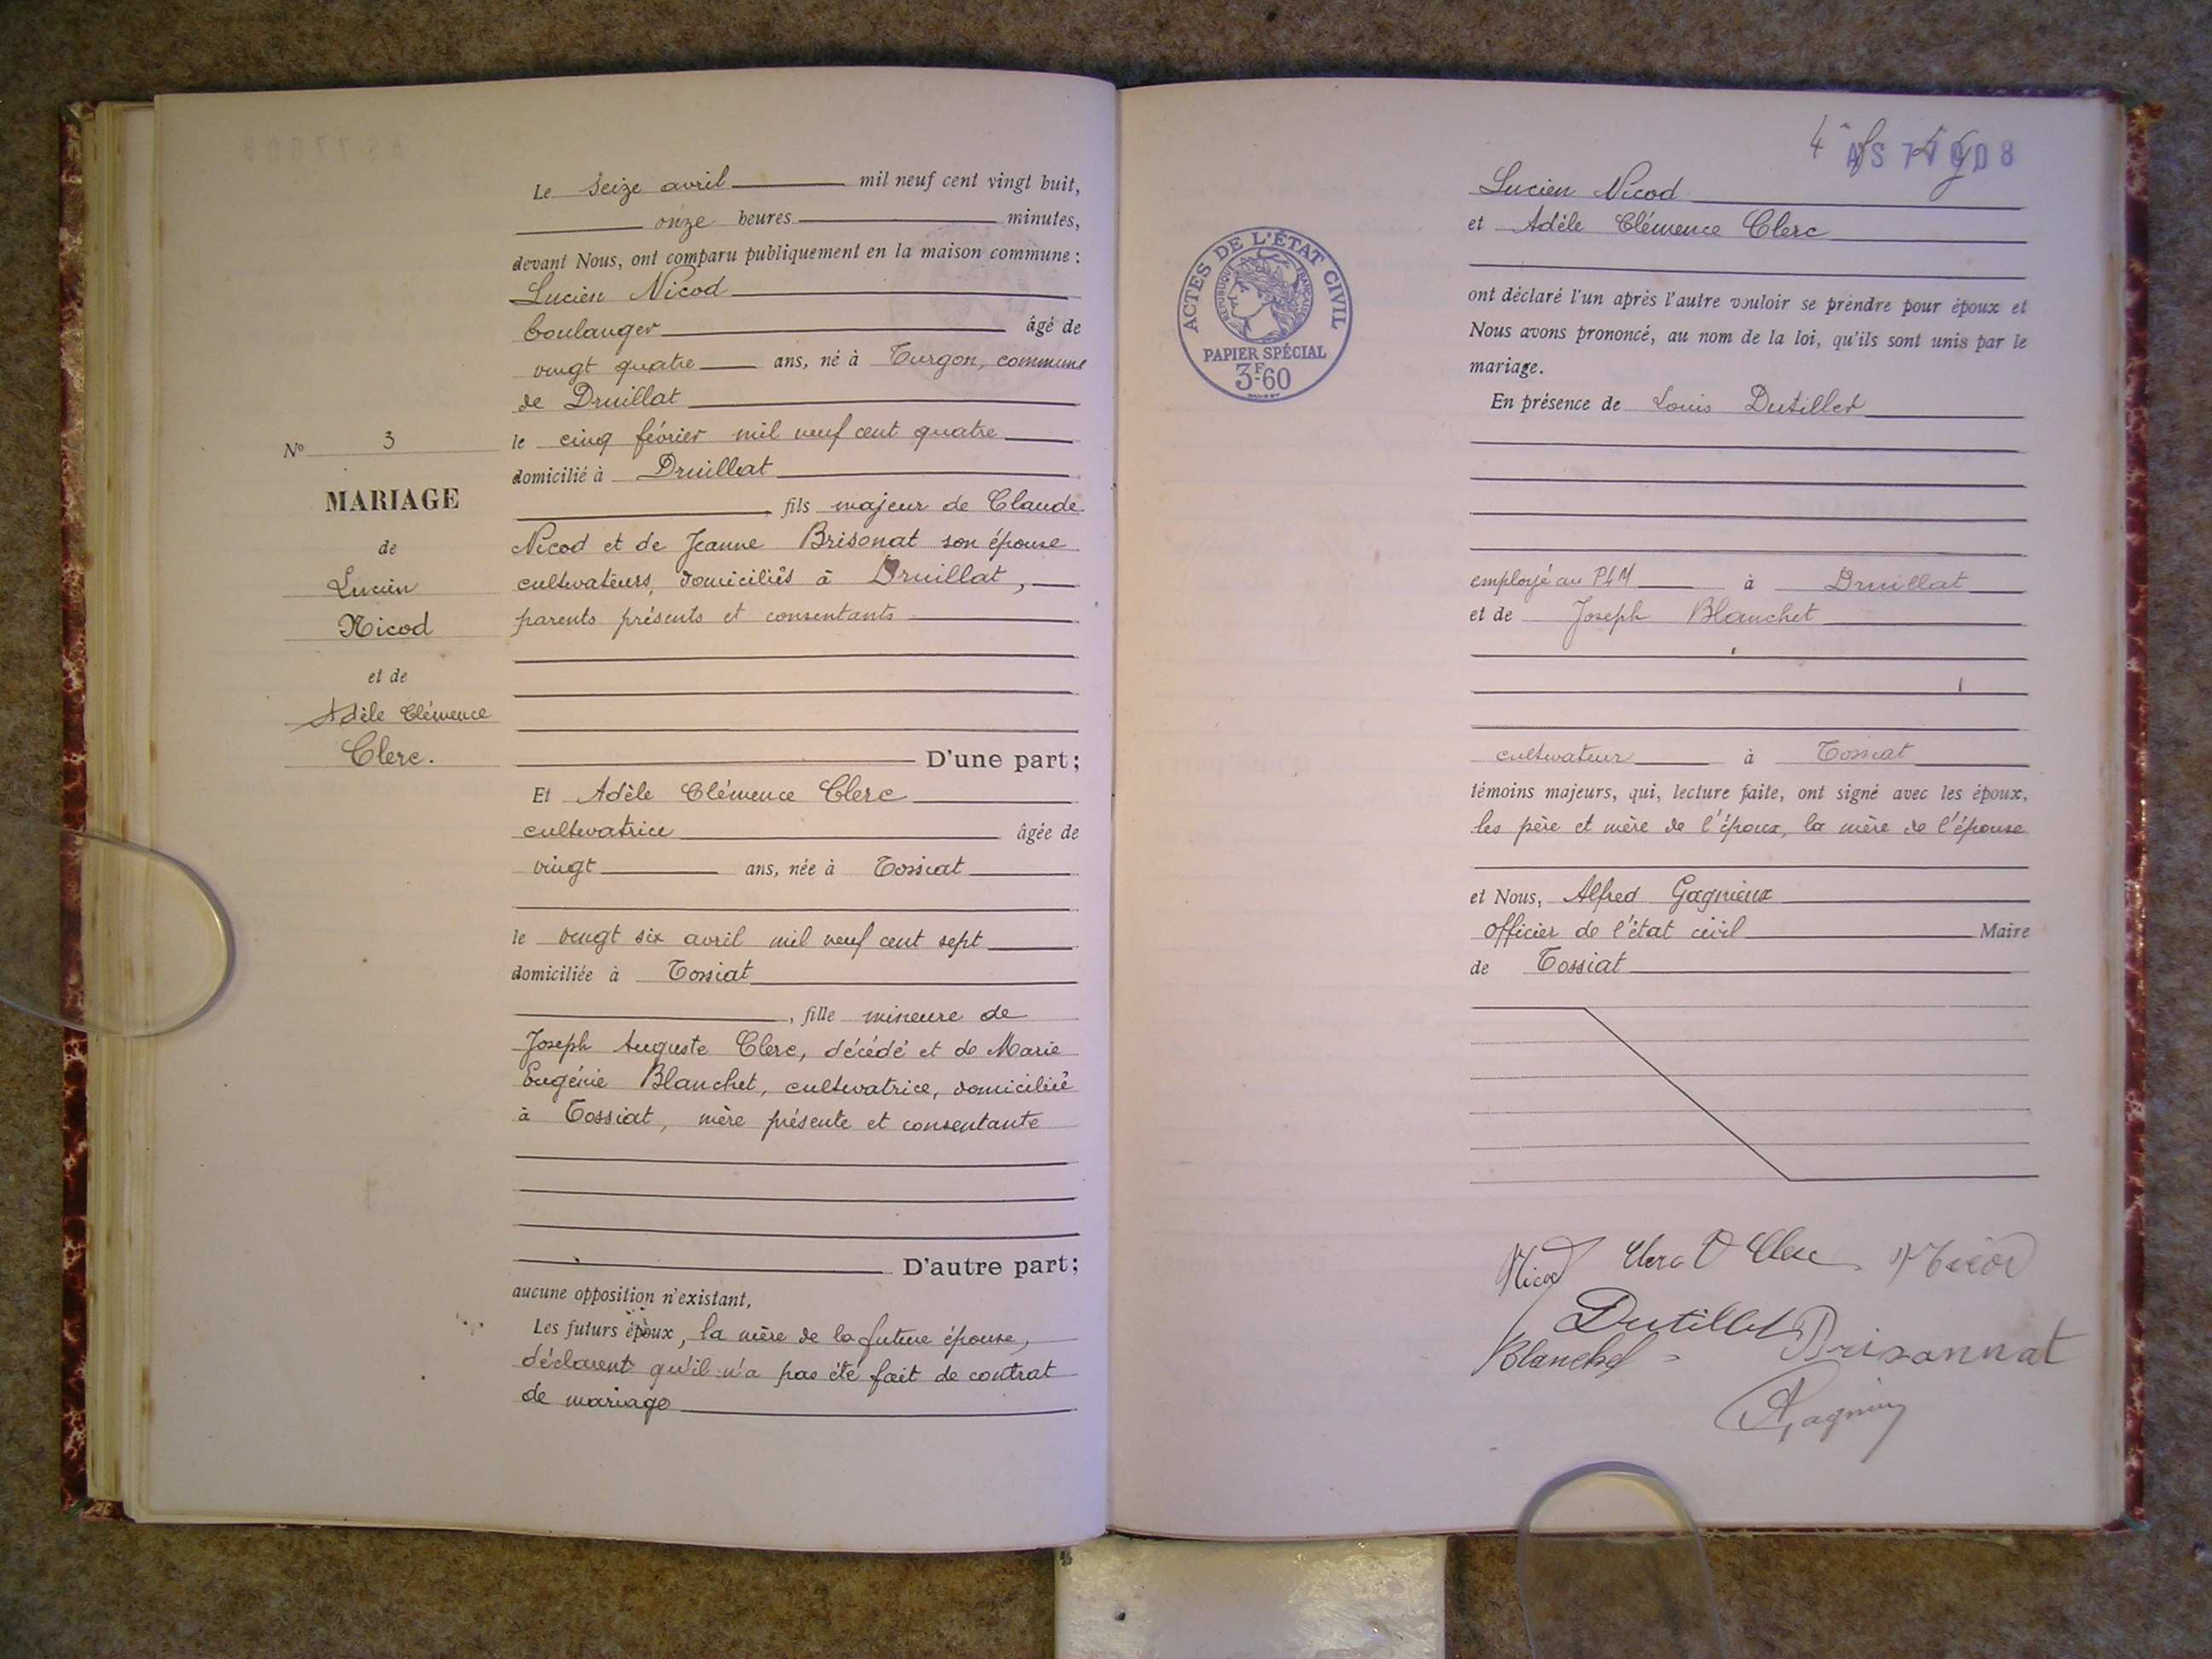 N° 3
MARIAGE
de
Lucien
Nicod
et de
Adèle Clémence
Clerc.
Le seize avril mil neuf cent vingt huit,
onze heures minutes,
devant Nous, ont comparu publiquement en la maison commune :
Lucien Nicod
boulanger âgé de
vingt quatre ans, né à Turgon, commune
de Druillat
le cinq février mil neuf cent quatre
domicilié à Druillat
, fils majeur de Claude
Nicod et de Jeanne Brisonat son épouse
cultivateurs, domiciliés à Druillat,
parents présents et consentants
D'une part;
Et Adèle Clémence Clerc
cultivatrice âgée de
vingt ans, née à Tossiat
le vingt six avril mil neuf cent sept
domiciliée à Tossiat
, fille mineure de
Joseph Auguste Clerc, décédé et de Marie
Eugénie Blanchet, cultivatrice, domiciliée
à Tossiat, mère présente et consentante
D'autre part;
aucune opposition n'existant,
Les futurs époux, la mère de la future épouse,
déclarent qu'il n'a pas été fait de contrat
de mariage
ACTES DE L'ÉTAT CIVIL
RÉPUBLIQUE FRANÇAISE
PAPIER SPÉCIAL
3F.60
Lucien Nicod
et Adèle Clémence Clerc
ont déclaré l'un après l'autre vouloir se prendre pour époux et
Nous avons prononcé, au nom de la loi, qu'ils sont unis par le
mariage.
En présence de Louis Dutillet
employé au PLM à Druillat
et de Joseph Blanchet
cultivateur à Tossiat
témoins majeurs, qui, lecture faite, ont signé avec les époux,
les père et mère de l'époux, la mère de l'épouse
et Nous, Alfred Gagnieux
officier de l'état civil Maire
de Tossiat
Nicod Clerc Clerc Nicod
Dutillet Brisonnat
Blanchet